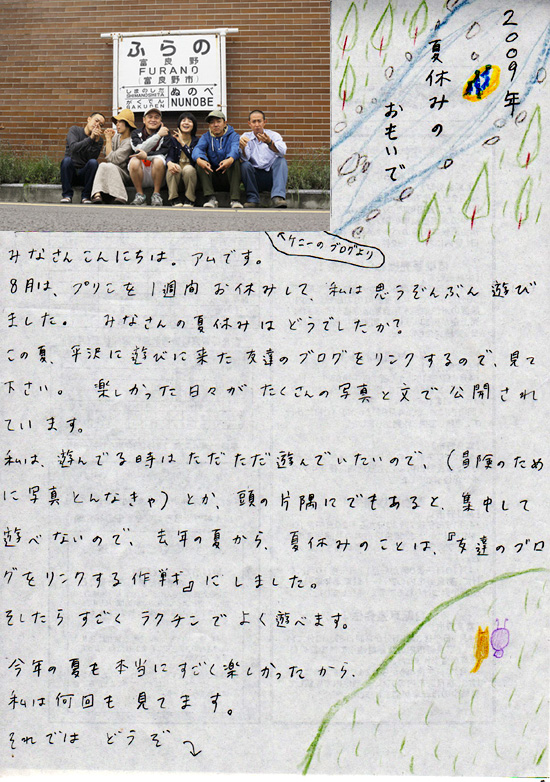 ふらの
富良野
FURANO
(富良野市)
しまのした
SHIMANOSHITA
がくでん
GAKUDEN
ぬのべ
NUNOBE
2009年
夏休みの
おもいで
↖ケニーのブログより
みなさんこんにちは。アムです。
8月は、プリンを1週間お休みして、私は思うぞんぶん遊び
ました。みなさんの夏休みはどうでしたか?
この夏、平沢に遊びに来た友達のブログをリンクするので、見て
下さい。楽しかった日々がたくさんの写真と文で公開され
ています。
私は、遊んでる時はただただ遊んでいたいので、(冒険のため
に写真とんなきゃ)とか、頭の片隅にでもあると、集中して
遊べないので、去年の夏から、夏休みのことは、『友達のブロ
グをリンクする作戦』にしました。
そしたらすごくラクチンでよく遊べます。
今年の夏も本当にすごく楽しかったから、
私は何回も見てます。
それではどうぞ